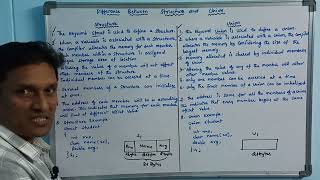 Difference Between Structure and Union
Structure
1. The keyword struct is used to define a structure
2. When a variable is associated with a structure, the compiler allocates the memory for each member
3. Each member within a structure is assigned unique storage area of location
4. Altering the value of a member will not affect other members of the structure
5. Individual member can be accessed at a time
6. Several members of a structure can initialize at once
7. The address of each member will be in ascending order. This indicates that memory for each member will start at different offset value
8. Structure Example
struct student
{
int rno;
char name[40];
double avg;
} s1;
Union
1. The keyword union is used to define a union
2. When a variable is associated with a union, the compiler allocates the memory by considering the size of the largest memory
3. Memory allocated is shared by individual members of union
4. Altering the value of any of the member will alter other member values
5. Only one member can be accessed at a time
6. Only the first member of a union can be initialized
7. The address is same for all the members of a union. This indicates that every member begins at the same offset value
8. Union Example
union student
{
int rno;
char name[40];
double avg;
} u1;